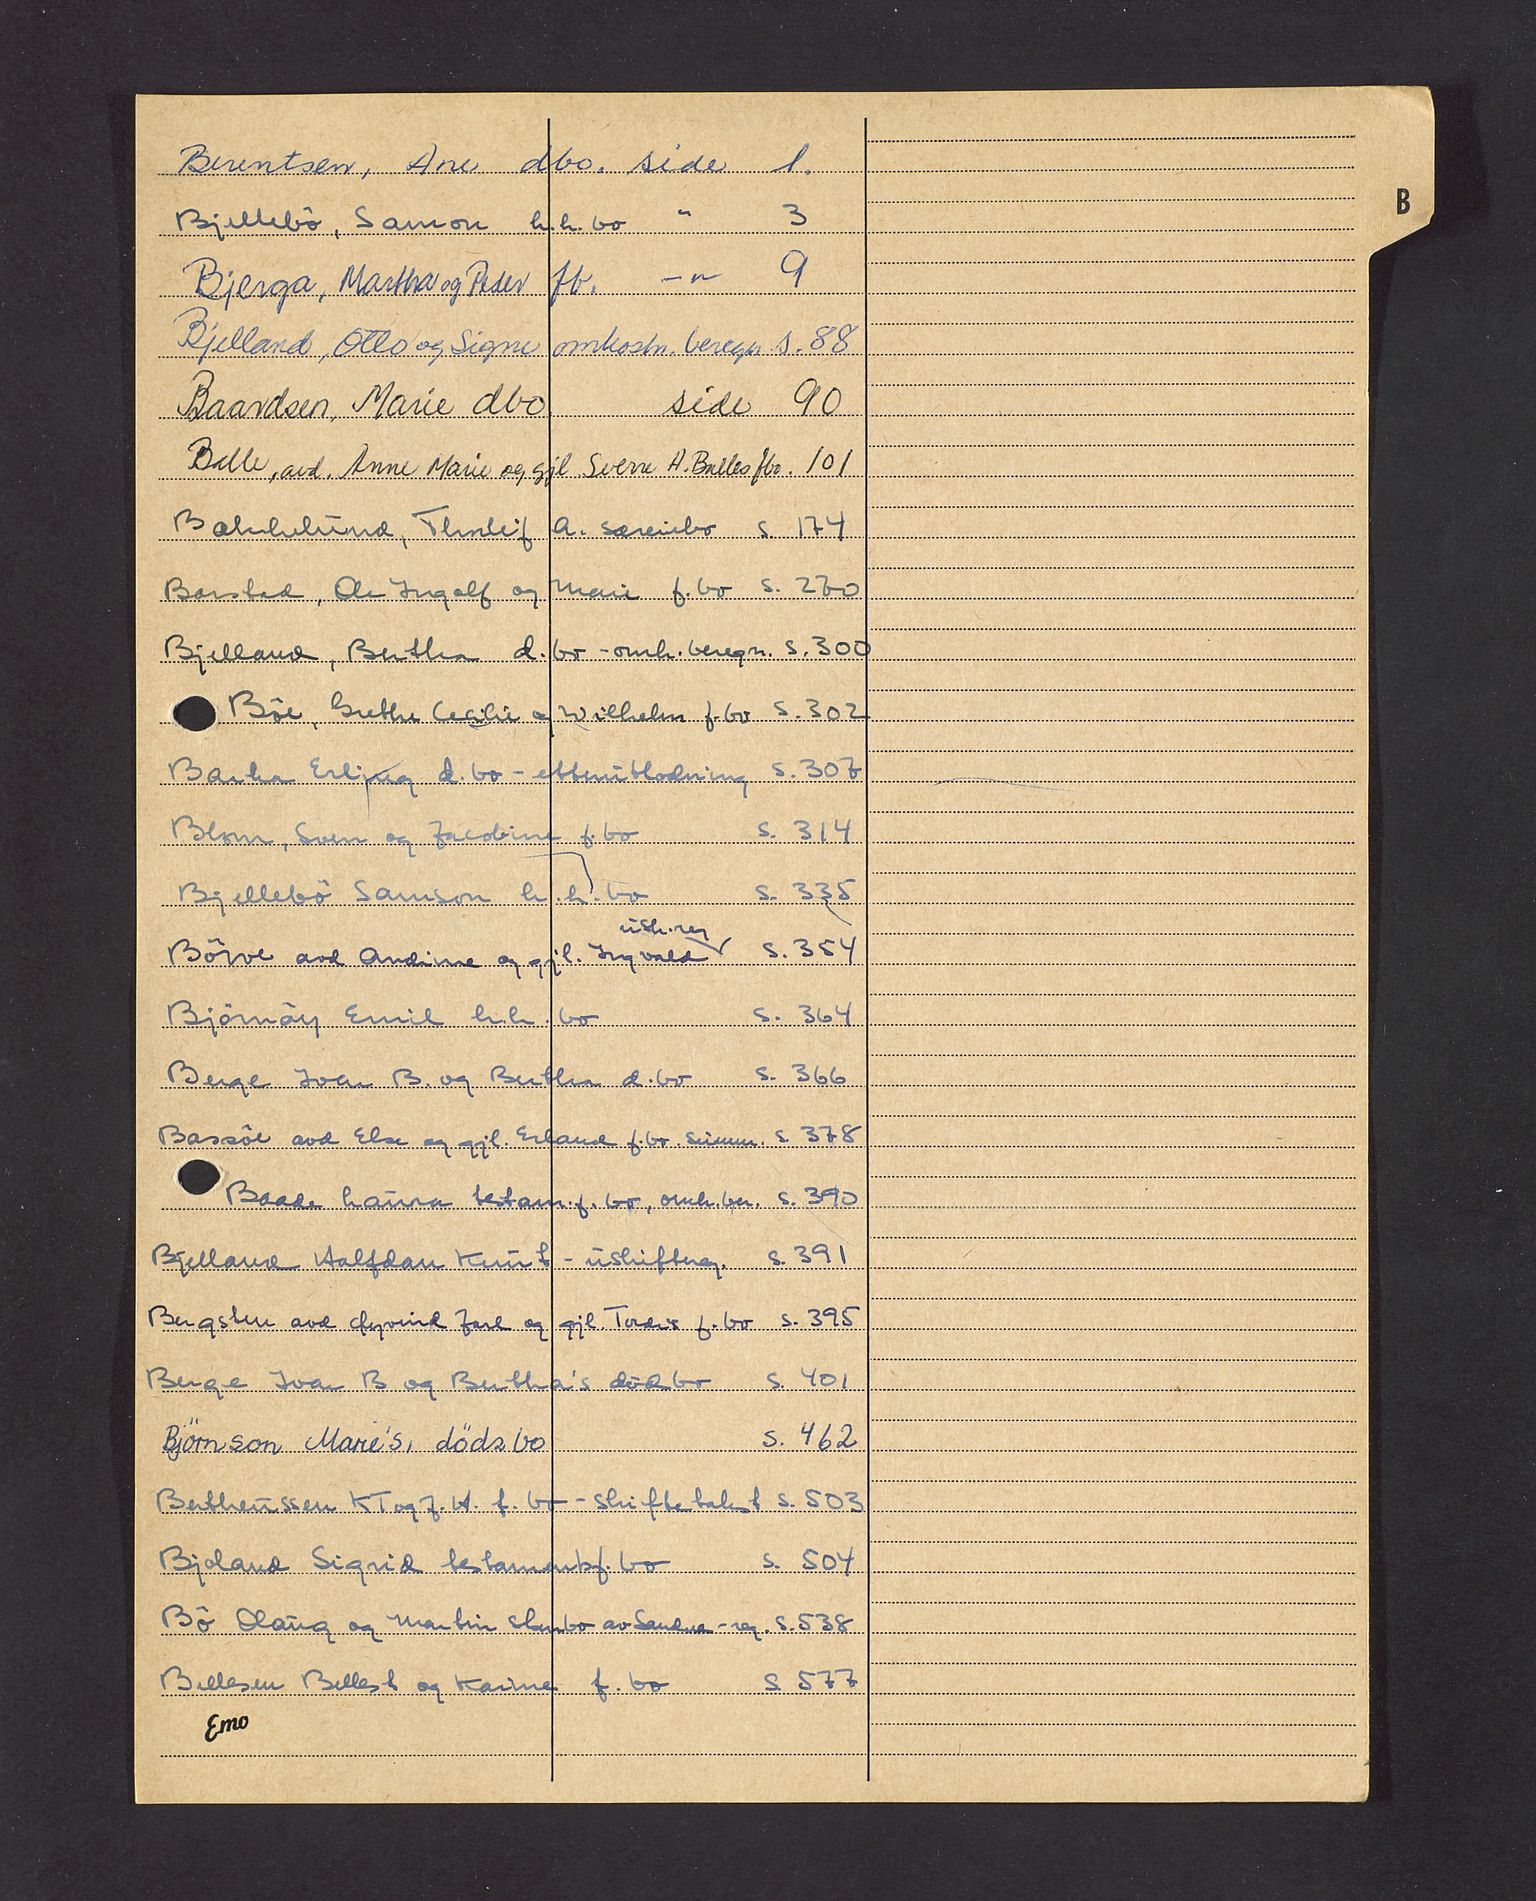 B
Berentsen, Ane dbo. side 1.
Bjellebö, Samon h.h.bo " 3
Bjerga, Martha og Peder fb. -"- 9
Bjelland, Otto og Signe omkostn. beregn s. 88
Baardsen, Marie dbo side 90
Balle, avd. Anne Marie og gjl Sverre A. Balles fbo. 101
A. særeiebo s. 174
Borstad, Ole Ingolf og Marie f. bo s. 260
Bjelland, Bertha d. bo - omk. beregn. s. 300
Böe, Grethe Cecilie og Wilhelm f. bo s. 302
Barka Erling d. bo - etterutlodning s. 307
Blom, Sven og Jacobine f. bo s. 314
Bjellebö Samson h.h. bo s. 335
usk.reg
Börve avd Andine og gjl. Ingvald s. 354
Björnöy Emil h.h. bo s. 364
Berge Ivar B. og Bertha d. bo s. 366
Bassöe avd Else og gjl. Erland f. bo. summ. s. 378
Baade Laura testam. f. bo, omk. ber. s. 390
Bjelland Halfdan Knut - uskiftereg. s. 391
Bergsten avd Öyvind Jarl og gjl. Tordis f. bo s. 395
Berge Ivar B og Bertha's död bo s. 401
Björnson Marie's, dödsbo s. 462
Bertheussen KT og J. H. f. bo - skiftetakst s. 503
Bjoland Sigrid testament f. bo s. 504
Bö Olaug og Martin skbo av Sandve - reg. s. 538
Bellesen Bellest og Karine f. bo s 577
Emo